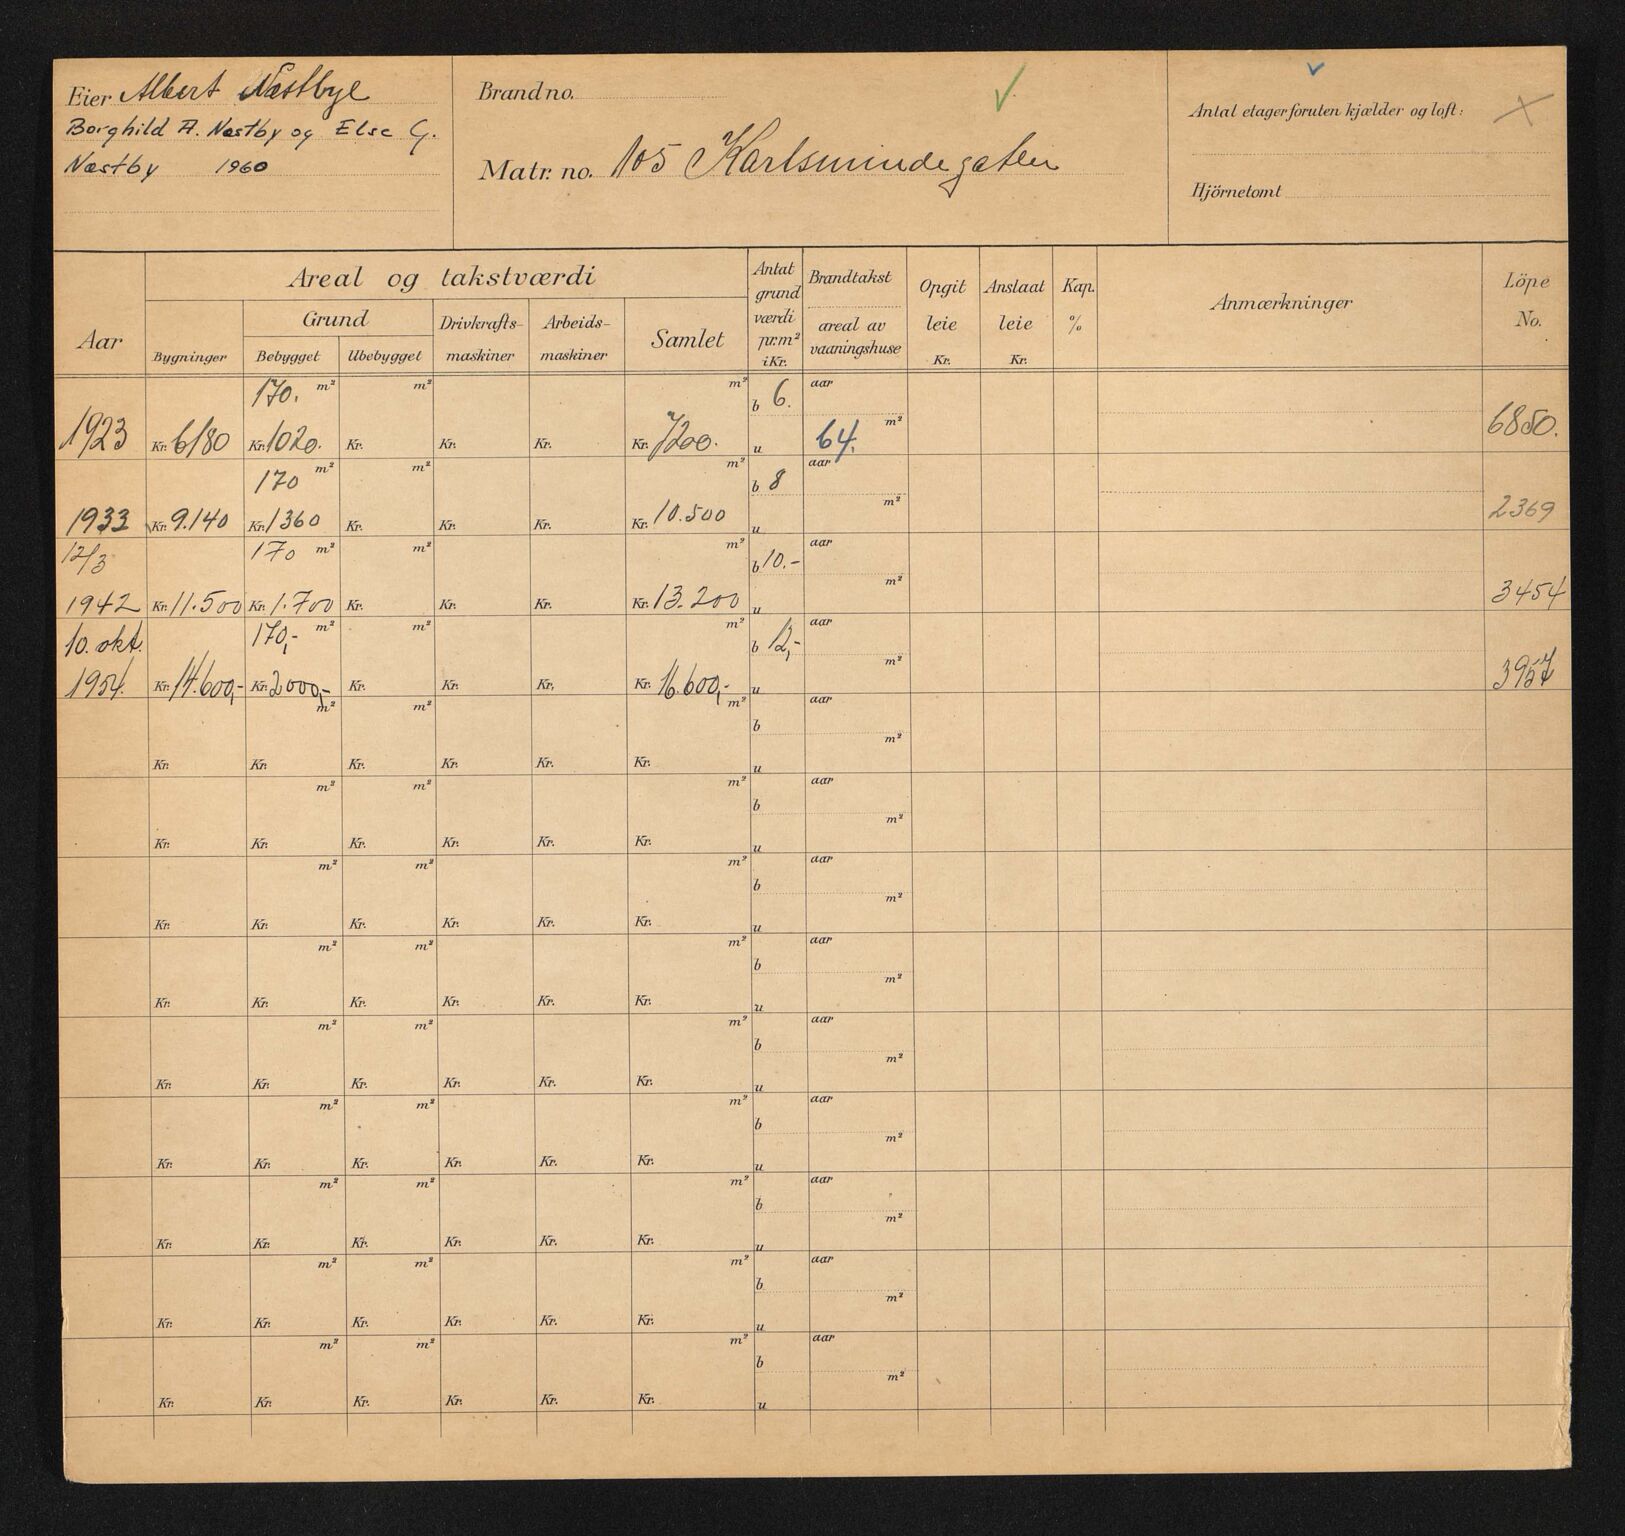 Eier Albert Næstbye
Borghild A. Næstby og Else G.
Næstby 1960
Brand no.
Matr. no. 105 Karlsmindegaten
Antal etager foruten kjælder og loft:
Hjörnetomt
Aar
Areal og takstværdi
Bygninger
Grund
Bebygget Ubebygget
Drivkrafts-
maskiner
Arbeids-
maskiner
Samlet
Antat
grund
værdi
pr. m²
i Kr.
Brandtakst
areal av
vaaningshuse
Opgit
leie
Kr.
Anslaat
leie
Kr.
Kap.
%
Anmærkninger
Löpe
No.
170. m² m² m² b 6. aar
1923 Kr. 6180 Kr. 1020. Kr. Kr. Kr. Kr. 7200. u 64. m² 6850.
170 m² m² m² b 8 aar
1933 Kr. 9.140 Kr. 1360 Kr. Kr. Kr. Kr. 10.500 u m² 2369
12/3 170 m² m² m² b 10.- aar
1942 Kr. 11.500 Kr. 1.700 Kr. Kr. Kr. Kr. 13.200 u m² 3454
10. okt. 170,- m² m² m² b 12,- aar
1954. Kr. 14.600,- Kr. 2000,- Kr. Kr. Kr. Kr. 16.600,- u m² 3957
m² m² m² b aar
Kr. Kr. Kr. Kr. Kr. Kr. u m²
m² m² m² b aar
Kr. Kr. Kr. Kr. Kr. Kr. u m²
m² m² m² b aar
Kr. Kr. Kr. Kr. Kr. Kr. u m²
m² m² m² b aar
Kr. Kr. Kr. Kr. Kr. Kr. u m²
m² m² m² b aar
Kr. Kr. Kr. Kr. Kr. Kr. u m²
m² m² m² b aar
Kr. Kr. Kr. Kr. Kr. Kr. u m²
m² m² m² b aar
Kr. Kr. Kr. Kr. Kr. Kr. u m²
m² m² m² b aar
Kr. Kr. Kr. Kr. Kr. Kr. u m²
m² m² m² b aar
Kr. Kr. Kr. Kr. Kr. Kr. u m²